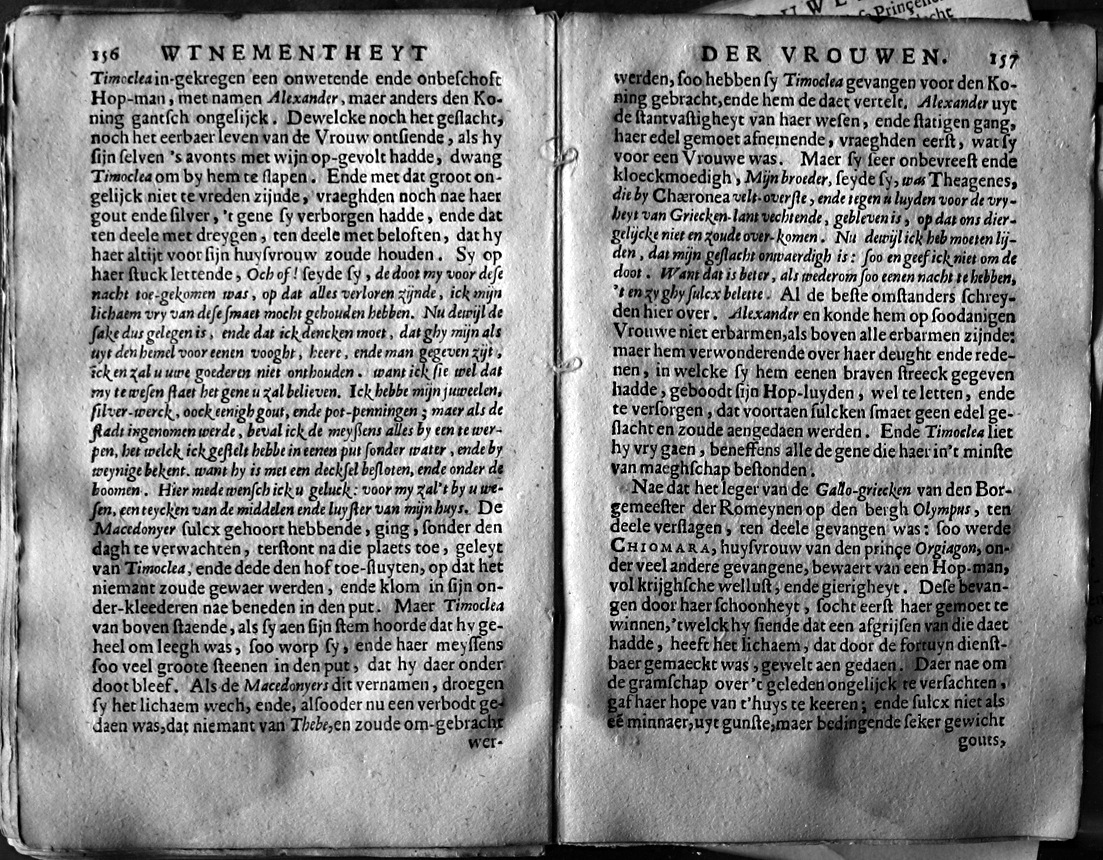 UWE
& Prinçen
156 WTNEMENTHEYT
Timoclea in-gekregen een onwetende ende onbeſchoft
Hop-man, met namen Alexander, maer anders den Ko-
ning gantſch ongelijck. Dewelcke noch het geſlacht,
noch het eerbaer leven van de Vrouw ontſiende, als hy
ſijn ſelven 's avonts met wijn op-gevolt hadde, dwang
Timoclea om by hem te ſlapen. Ende met dat groot on-
gelijck niet te vreden zijnde, vraeghden noch nae haer
gout ende ſilver, 't gene ſy verborgen hadde, ende dat
ten deele met dreygen, ten deele met beloften, dat hy
haer altijt voor ſijn huyſvrouw zoude houden. Sy op
haer ſtuck lettende, Och of! ſeyde ſy, de doot my voor deſe
nacht toe-gekomen was, op dat alles verloren zijnde, ick mijn
lichaem vry van deſe ſmaet mocht gehouden hebben. Nu dewijl de
ſake dus gelegen is, ende dat ick dencken moet, dat ghy mijn als
uyt den hemel voor eenen vooght, heere, ende man gegeven zijt,
ick en zal u uwe goederen niet onthouden. want ick ſie wel dat
my te weſen ſtaet het gene u zal believen. Ick hebbe mijn juweelen,
ſilver-werck, oock eenigh gout, ende pot-penningen; maer als de
ſtadt ingenomen werde, beval ick de meyßens alles by een te wer-
pen, het welck ick geſtelt hebbe in eenen put ſonder water, ende by
weynige bekent. want hy is met een deckſel beſloten, ende onder de
boomen. Hier mede wenſch ick u geluck: voor my zal't by u we-
ſen, een teycken van de middelen ende luyſter van mijn huys. De
Macedonyer ſulcx gehoort hebbende, ging, ſonder den
dagh te verwachten, terſtont na die plaets toe, geleyt
van Timoclea, ende dede den hof toe-ſluyten, op dat het
niemant zoude gewaer werden, ende klom in ſijn on-
der-kleederen nae beneden in den put. Maer Timoclea
van boven ſtaende, als ſy aen ſijn ſtem hoorde dat hy ge-
heel om leegh was, ſoo worp ſy, ende haer meyſſens
ſoo veel groote ſteenen in den put, dat hy daer onder
doot bleef. Als de Macedonyers dit vernamen, droegen
ſy het lichaem wech, ende, alſooder nu een verbodt ge-
daen was, dat niemant van Thebe, en zoude om-gebracht
wer-
DER VROUWEN. 157
werden, ſoo hebben ſy Timoclea gevangen voor den Ko-
ning gebracht, ende hem de daet vertelt. Alexander uyt
de ſtantvaſtigheyt van haer weſen, ende ſtatigen gang,
haer edel gemoet afnemende, vraeghden eerſt, wat ſy
voor een Vrouwe was. Maer ſy ſeer onbevreeſt ende
kloeckmoedigh, Mijn broeder, ſeyde ſy, was Theagenes,
die by Chæronea velt-overſte, ende tegen u luyden voor de vry-
heyt van Griecken-lant vechtende, gebleven is, op dat ons dier-
gelijcke niet en zoude over-komen. Nu dewijl ick heb moeten lij-
den, dat mijn geſlacht onwaerdigh is: ſoo en geef ick niet om de
doot. Want dat is beter, als wederom ſoo eenen nacht te hebben,
't en zy ghy ſulcx belette. Al de beſte omſtanders ſchrey-
den hier over. Alexander en konde hem op ſoodanigen
Vrouwe niet erbarmen, als boven alle erbarmen zijnde:
maer hem verwonderende over haer deught ende rede-
nen, in welcke ſy hem eenen braven ſtreeck gegeven
hadde, geboodt ſijn Hop-luyden, wel te letten, ende
te verſorgen, dat voortaen ſulcken ſmaet geen edel ge-
ſlacht en zoude aengedaen werden. Ende Timoclea liet
hy vry gaen, beneffens alle de gene die haer in't minſte
van maeghſchap beſtonden.
Nae dat het leger van de Gallo-griecken van den Bor-
gemeeſter der Romeynen op den bergh Olympus, ten
deele verſlagen, ten deele gevangen was: ſoo werde
CHIOMARA, huyſvrouw van den prinçe Orgiagon, on-
der veel andere gevangene, bewaert van een Hop-man,
vol krijghſche welluſt, ende gierigheyt. Deſe bevan-
gen door haer ſchoonheyt, ſocht eerſt haer gemoet te
winnen, 'twelck hy ſiende dat een afgrijſen van die daet
hadde, heeft het lichaem, dat door de fortuyn dienſt-
baer gemaeckt was, gewelt aen gedaen. Daer nae om
de gramſchap over 't geleden ongelijck te verſachten,
gaf haer hope van t'huys te keeren; ende ſulcx niet als
eẽ minnaer, uyt gunſte, maer bedingende ſeker gewicht
gouts,